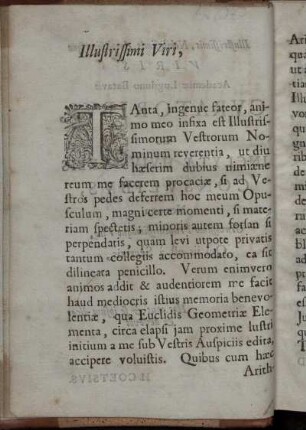 Illustrissimi Viri,
TAnta, ingenue fateor, ani-
mo meo infixa est Illustris-
simorum Vestrorum No-
minum reverentia, ut diu
hæserim dubius nimiæne
reum me facerem procaciæ, si ad Ve-
stros pedes deferrem hoc meum Opu-
sculum, magni certe momenti, si mate-
riam spectetis; minoris autem forsan si
perpendatis, quam levi utpote privatis
tantum collegiis accommodato, ea sit
dilineata penicillo. Verum enimvero
animos addit & audentiorem me facit
haud mediocris istius memoria benevo-
lentiæ, qua Euclidis Geometriæ Ele-
menta, circa elapsi jam proxime lustri
initium a me sub Vestris Auspiciis edita,
accipere voluistis. Quibus cum hæc
Arith-